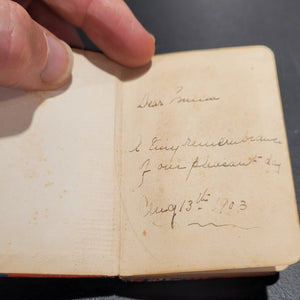 Dear Emma
A tiny remembrance
of our pleasant day
Aug 13th 1903